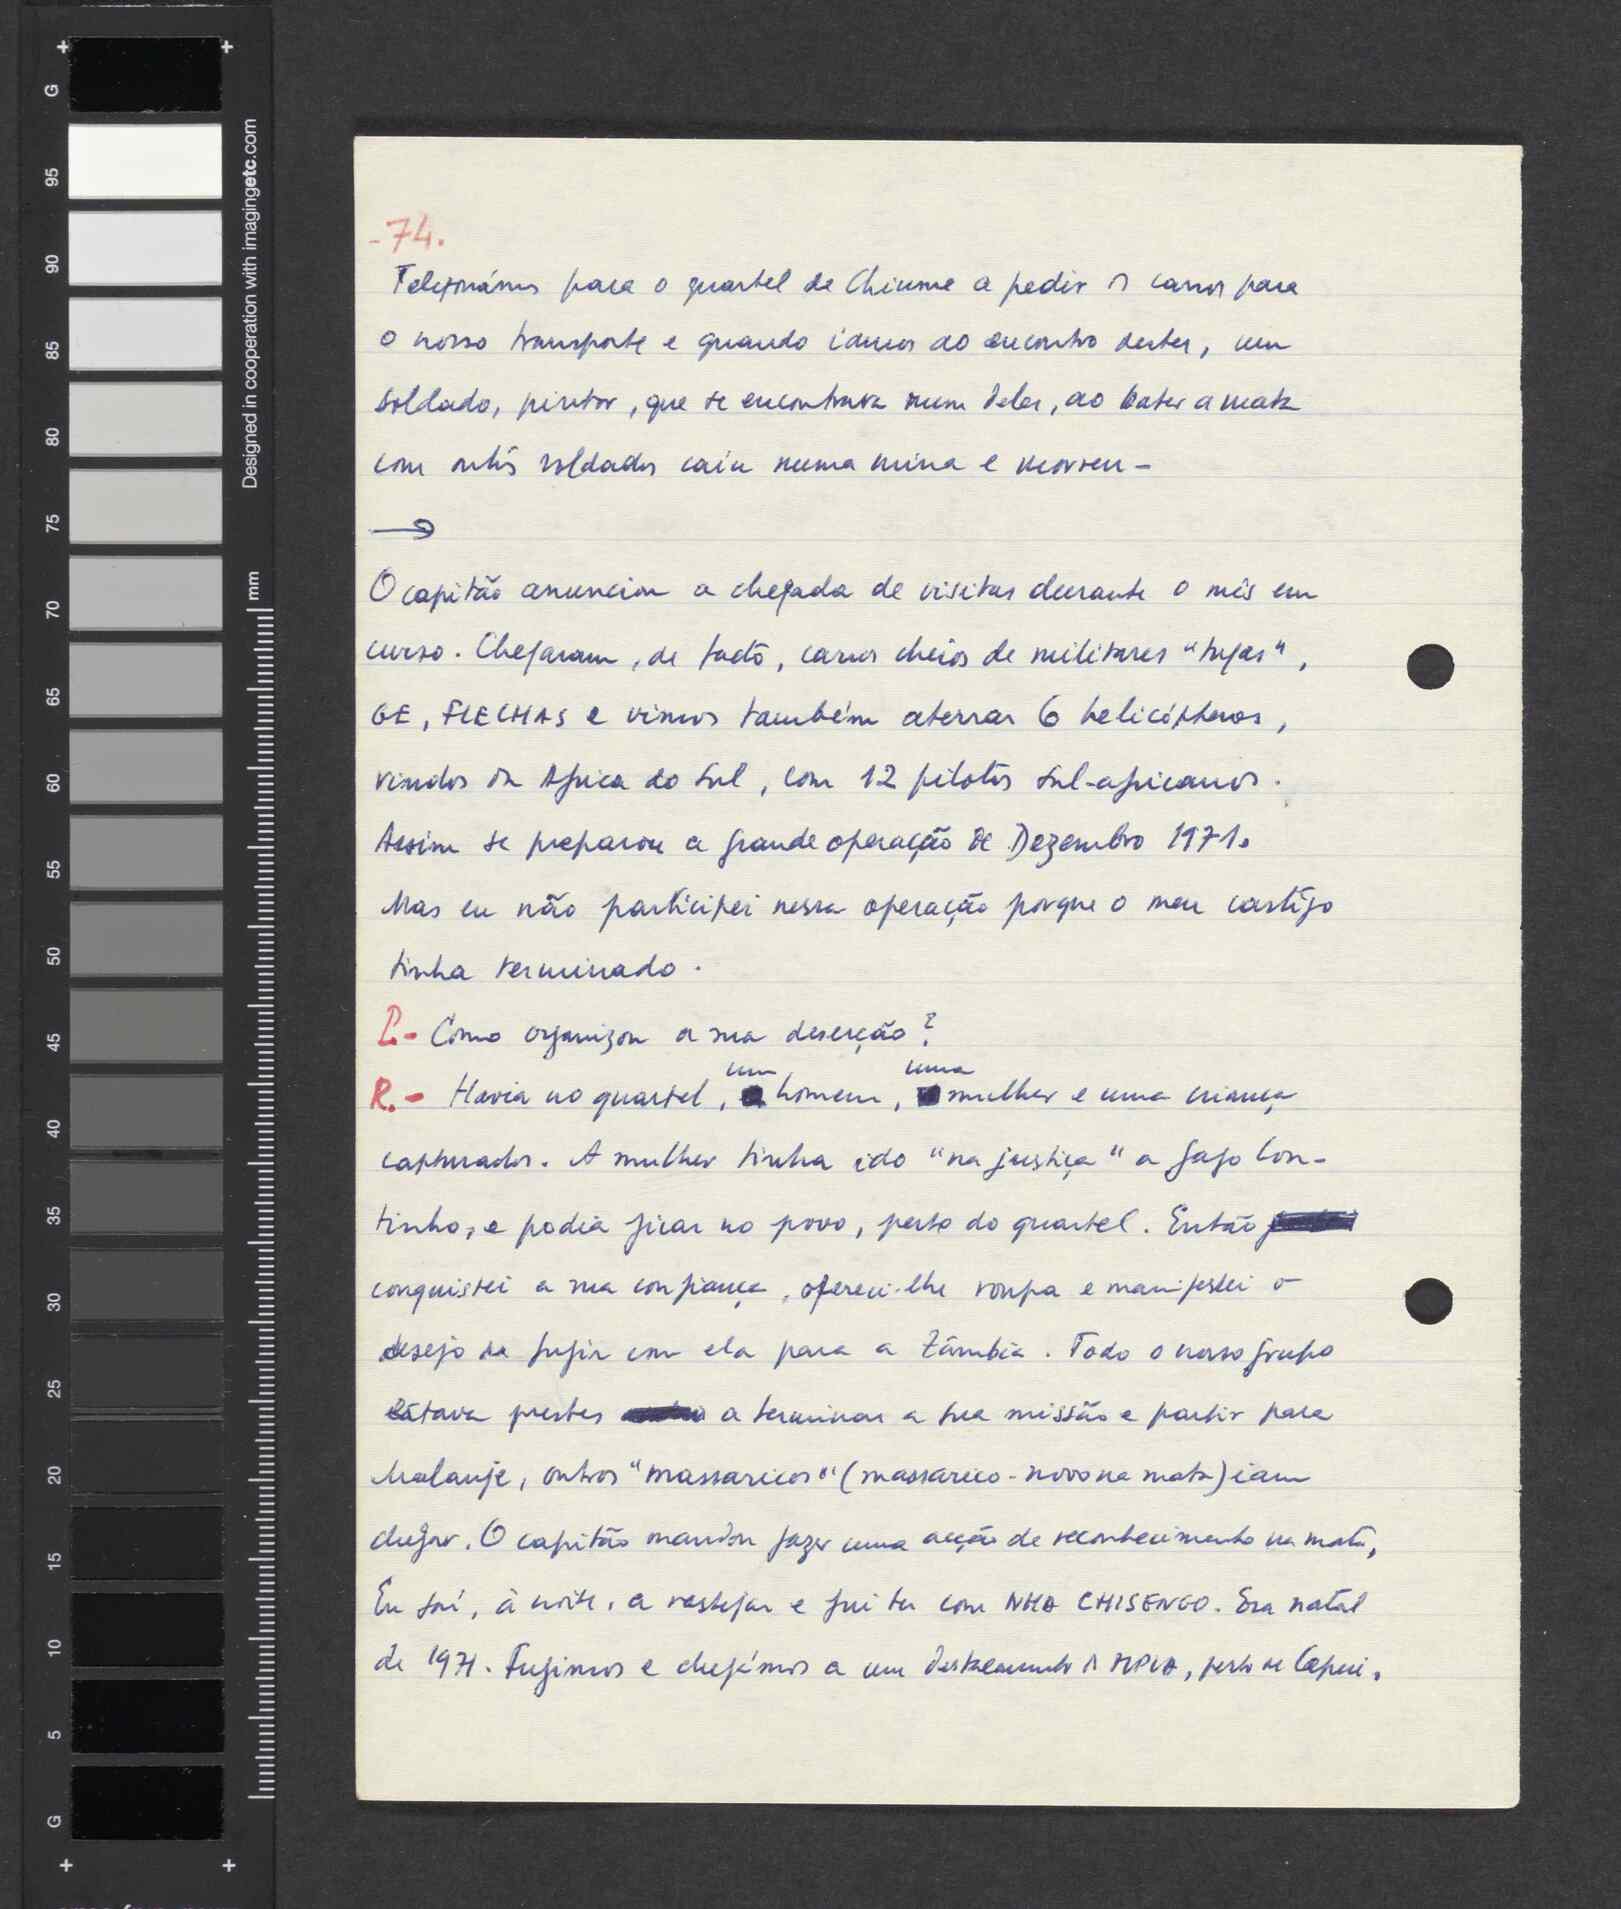 G
95
90
85
80
75
70
65
60
55
50
45
40
35
30
25
20
15
10
5
G
Designed in cooperation with imagingetc.com
mm
-74.
Telefonámos para o quartel de Chiume a pedir os carros para
o nosso transporte e quando íamos ao encontro destes, um
soldado, pintor, que se encontrava num deles, ao bater a mata
com outros soldados caiu numa mina e morreu-
O capitão anunciou a chegada de visitas durante o mês em
curso. Chegaram, de facto, carros cheios de militares "tugas",
GE, FLECHAS e vimos também aterrar 6 helicópteros,
vindos da Africa do Sul, com 12 pilotos sul-africanos.
Assim se preparou a grande operação de Dezembro 1971.
Mas eu não participei nessa operação porque o meu castigo
tinha terminado.
P.- Como organizou a sua deserção?
um uma
R.- Havia no quartel, homem, mulher e uma criança
capturados. A mulher tinha ido "na justiça" a Gago Cou-
tinho, e podia ficar no povo, perto do quartel. Então
conquistei a sua confiança, ofereci-lhe roupa e manifestei o
desejo de fugir com ela para a Zâmbia. Todo o nosso grupo
estava prestes a terminar a sua missão e partir para
Malanje, outros "massaricos" (massarico-novo na mata) iam
chegar. O capitão mandou fazer uma acção de reconhecimento na mata,
Eu saí, à noite, a rastejar e fui ter com NHA CHISENGO. Era natal
de 1971. Fugimos e chegámos a um destacamento do MPLA, perto de